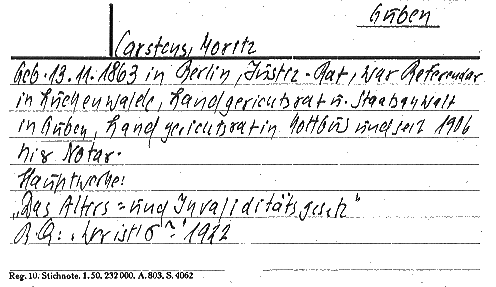 Guben
Carstens, Moritz
Geb. 13.11.1863 in Berlin, Justiz-Rat, war Referendar
in Luckenwalde, Landgerichtsrat u. Staatsanwalt
in Guben, Landgerichtsrat in Kottbus und seit 1906
hier Notar.
Hauptwerke:
„Das Alters- und Invaliditätsgesetz"
B.Q.: Wer ist's 1922
Reg. 10. Stichnote. 1. 50. 232000. A. 803. S. 4062